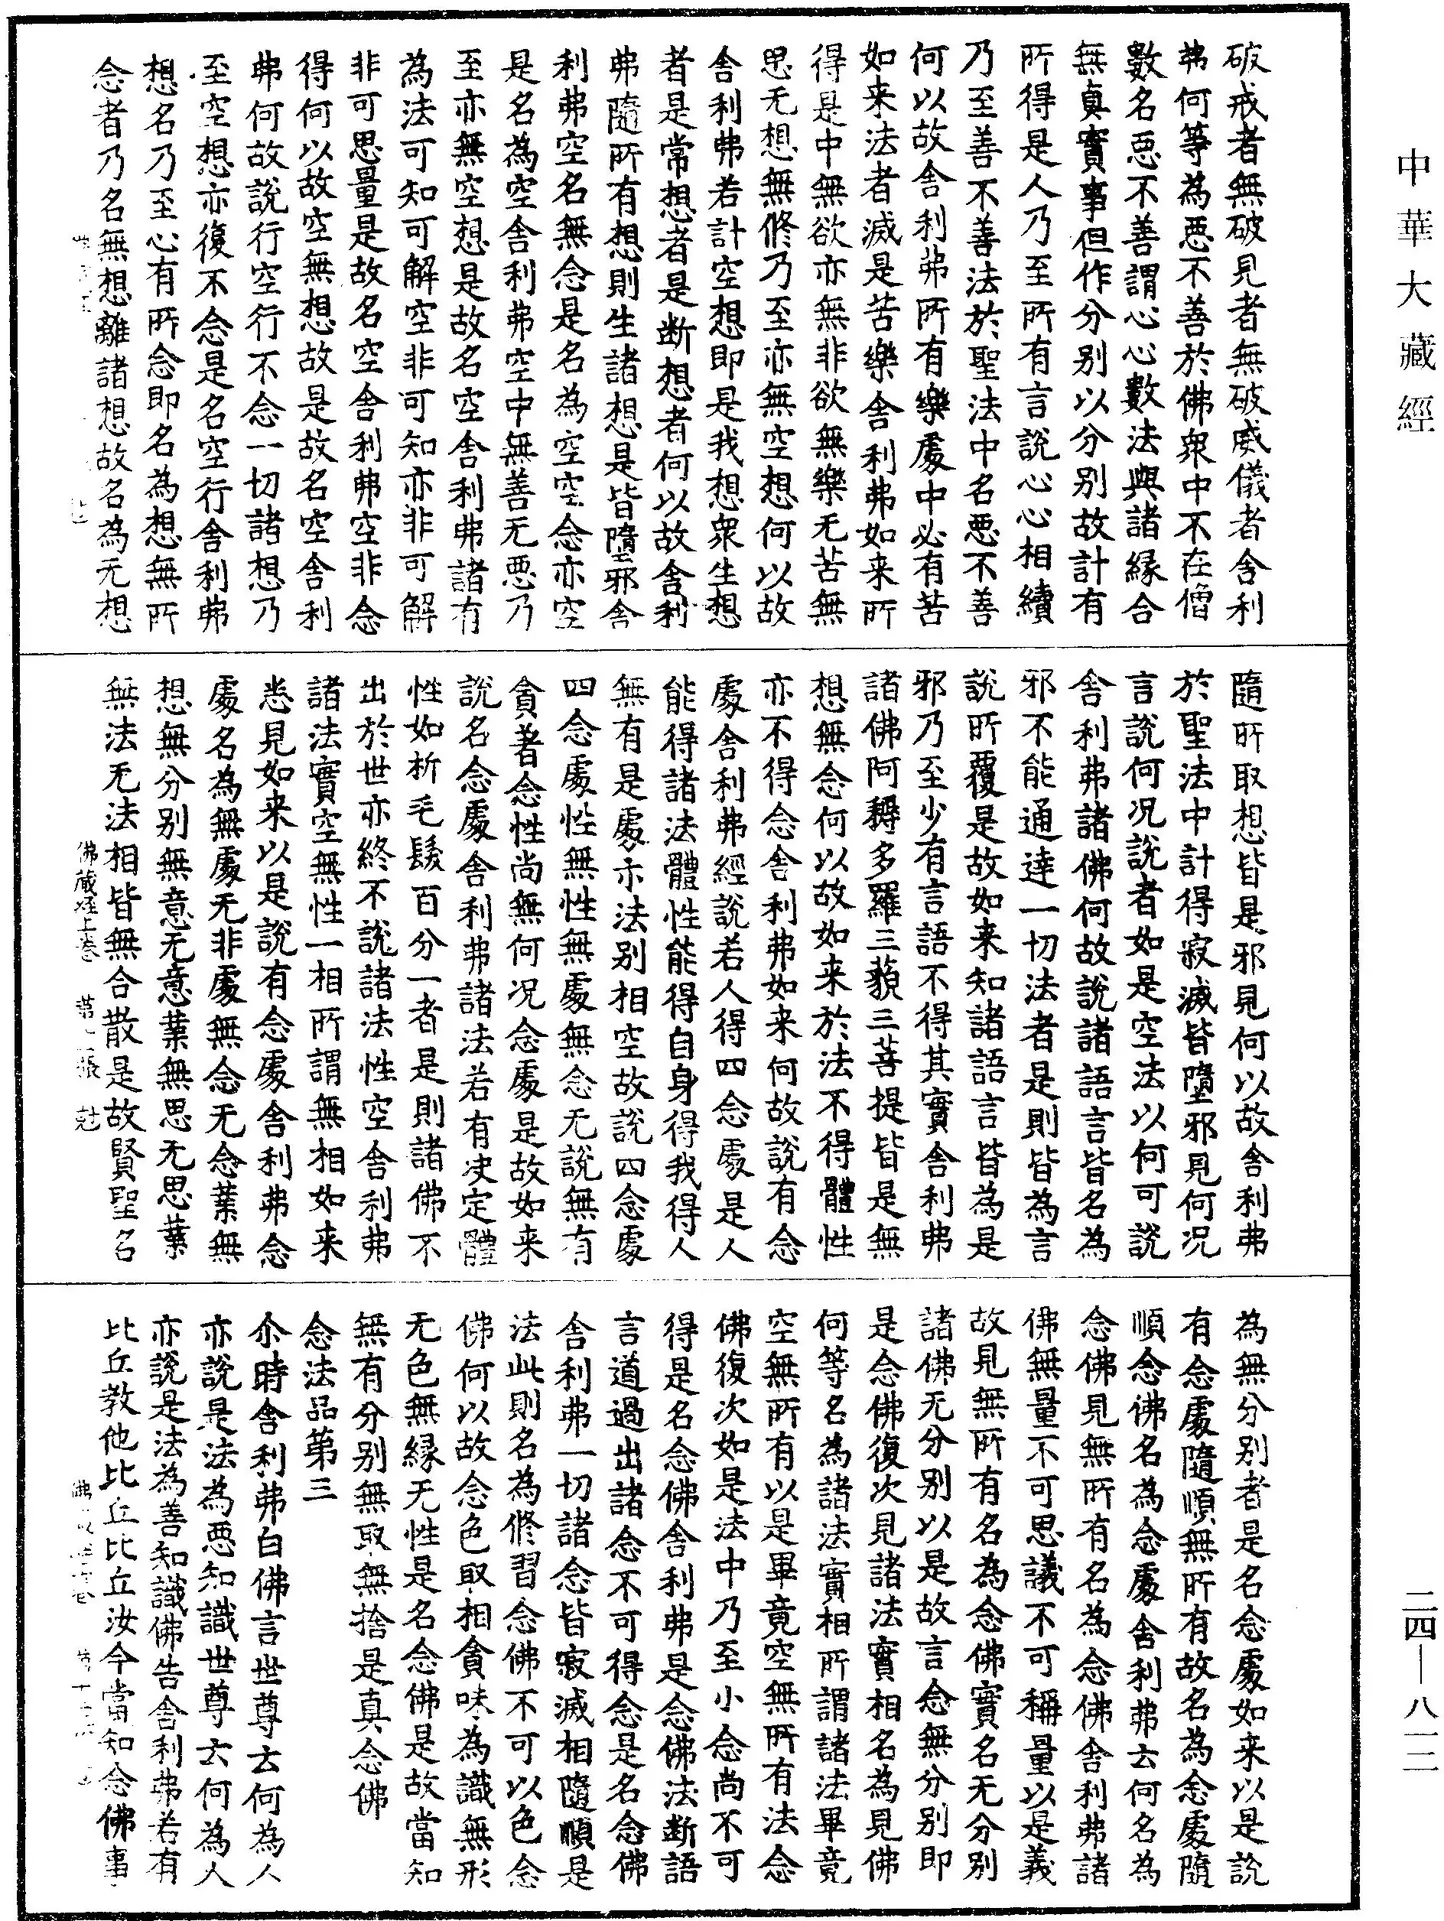 中華大藏經
破戒者無破見者無破威儀者舍利
弗何等為惡不善於佛衆中不在僧
數名惡不善謂心心數法與諸緣合
無真實事但作分別以分別故計有
所得是人乃至所有言說心心相續
乃至善不善法於聖法中名惡不善
何以故舍利弗所有樂處中必有苦
如来法者滅是苦樂舍利弗如来所
得是中無欲亦無非欲無樂无苦無
思无想無修乃至亦無空想何以故
舍利弗若計空想即是我想衆生想
者是常想者是断想者何以故舍利
弗隨所有想則生諸想是皆墮邪舍
利弗空名無念是名為空空念亦空
是名為空舍利弗空中無善无惡乃
至亦無空想是故名空舍利弗諸有
為法可知可解空非可知亦非可解
非可思量是故名空舍利弗空非念
得何以故空無想故是故名空舍利
弗何故說行空行不念一切諸想乃
至空想亦復不念是名空行舍利弗
想名乃至心有所念即名為想無所
念者乃名無想離諸想故名為无想
隨所取想皆是邪見何以故舍利弗
於聖法中計得寂滅皆墮邪見何况
言說何况說者如是空法以何可說
舍利弗諸佛何故說諸語言皆名為
邪不能通達一切法者是則皆為言
說所覆是故如来知諸語言皆為是
邪乃至少有言語不得其實舍利弗
諸佛阿耨多羅三藐三菩提皆是無
想無念何以故如来於法不得體性
亦不得念舍利弗如来何故說有念
處舍利弗經說若人得四念處是人
能得諸法體性能得自身得我得人
無有是處亦法別相空故說四念處
四念處性無性無處無念无說無有
貪著念性尚無何况念處是故如来
說名念處舍利弗諸法若有决定體
性如析毛髮百分一者是則諸佛不
出於世亦終不說諸法性空舍利弗
諸法實空無性一相所謂無相如来
悉見如来以是說有念處舍利弗念
處名為無處无非處無念无念業無
想無分別無意无意業無思无思業
無法无法相皆無合散是故賢聖名
佛藏經上卷 第 張 冠
為無分別者是名念處如来以是說
有念處隨順無所有故名為念處隨
順念佛名為念處舍利弗云何名為
念佛見無所有名為念佛舍利弗諸
佛無量不可思議不可稱量以是義
故見無所有名為念佛實名无分別
諸佛无分別以是故言念無分別即
是念佛復次見諸法實相名為見佛
何等名為諸法實相所謂諸法畢竟
空無所有以是畢竟空無所有法念
佛復次如是法中乃至小念尚不可
得是名念佛舍利弗是念佛法断語
言道過出諸念不可得念是名念佛
舍利弗一切諸念皆寂滅相隨順是
法此則名為修習念佛不可以色念
佛何以故念色取相貪味為識無形
无色無緣无性是名念佛是故當知
無有分別無取無捨是真念佛
念法品第三
尒時舍利弗白佛言世尊云何為人
亦說是法為惡知識世尊云何為人
亦說是法為善知識佛告舍利弗若有
比丘教他比丘比丘汝今當知念佛事
二四—八一二